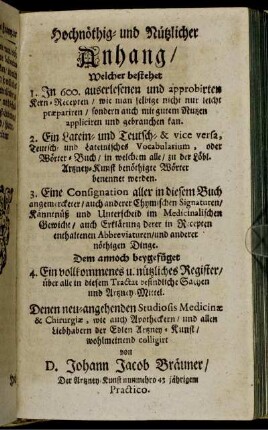 Hochnöthig- und Nützlicher
Anhang/
Welcher bestehet
1. In 600. auserlesenen und approbirten
Kern-Recepten/ wie man selbige nicht nur leicht
præpariren/ sondern auch mit gutem Nuzen
appliciren und gebrauchen kan.
2. Ein Latein- und Teutsch- & vice versa,
Teutsch- und Lateinisches Vocabularium, oder
Wörter-Buch/ in welchem alle/ zu der Löbl.
Artzney-Kunst benöthigte Wörter
benennet werden.
3. Eine Consignation aller in diesem Buch
angemerckter/ auch anderer Chymischen Signaturen/
Känntnüß und Unterscheid im Medicinalischen
Gewicht/ auch Erklärung derer in Recepten
enthaltenen Abbreviaturen/ und anderer
nöthigen Dinge.
Dem annoch beygefüget
4. Ein vollkommenes u. nützliches Register/
über alle in diesem Tractat befindliche Sachen
und Artzney-Mittel.
Denen neu-angehenden Studiosis Medicinæ
& Chirurgiæ, wie auch Apotheckern/ und allen
Liebhabern der Edlen Artzney-Kunst/
wohlmeinend colligirt
von
D. Johann Jacob Bräuner/
Der Artzney-Kunst nunmehro 45 jährigem
Practico.